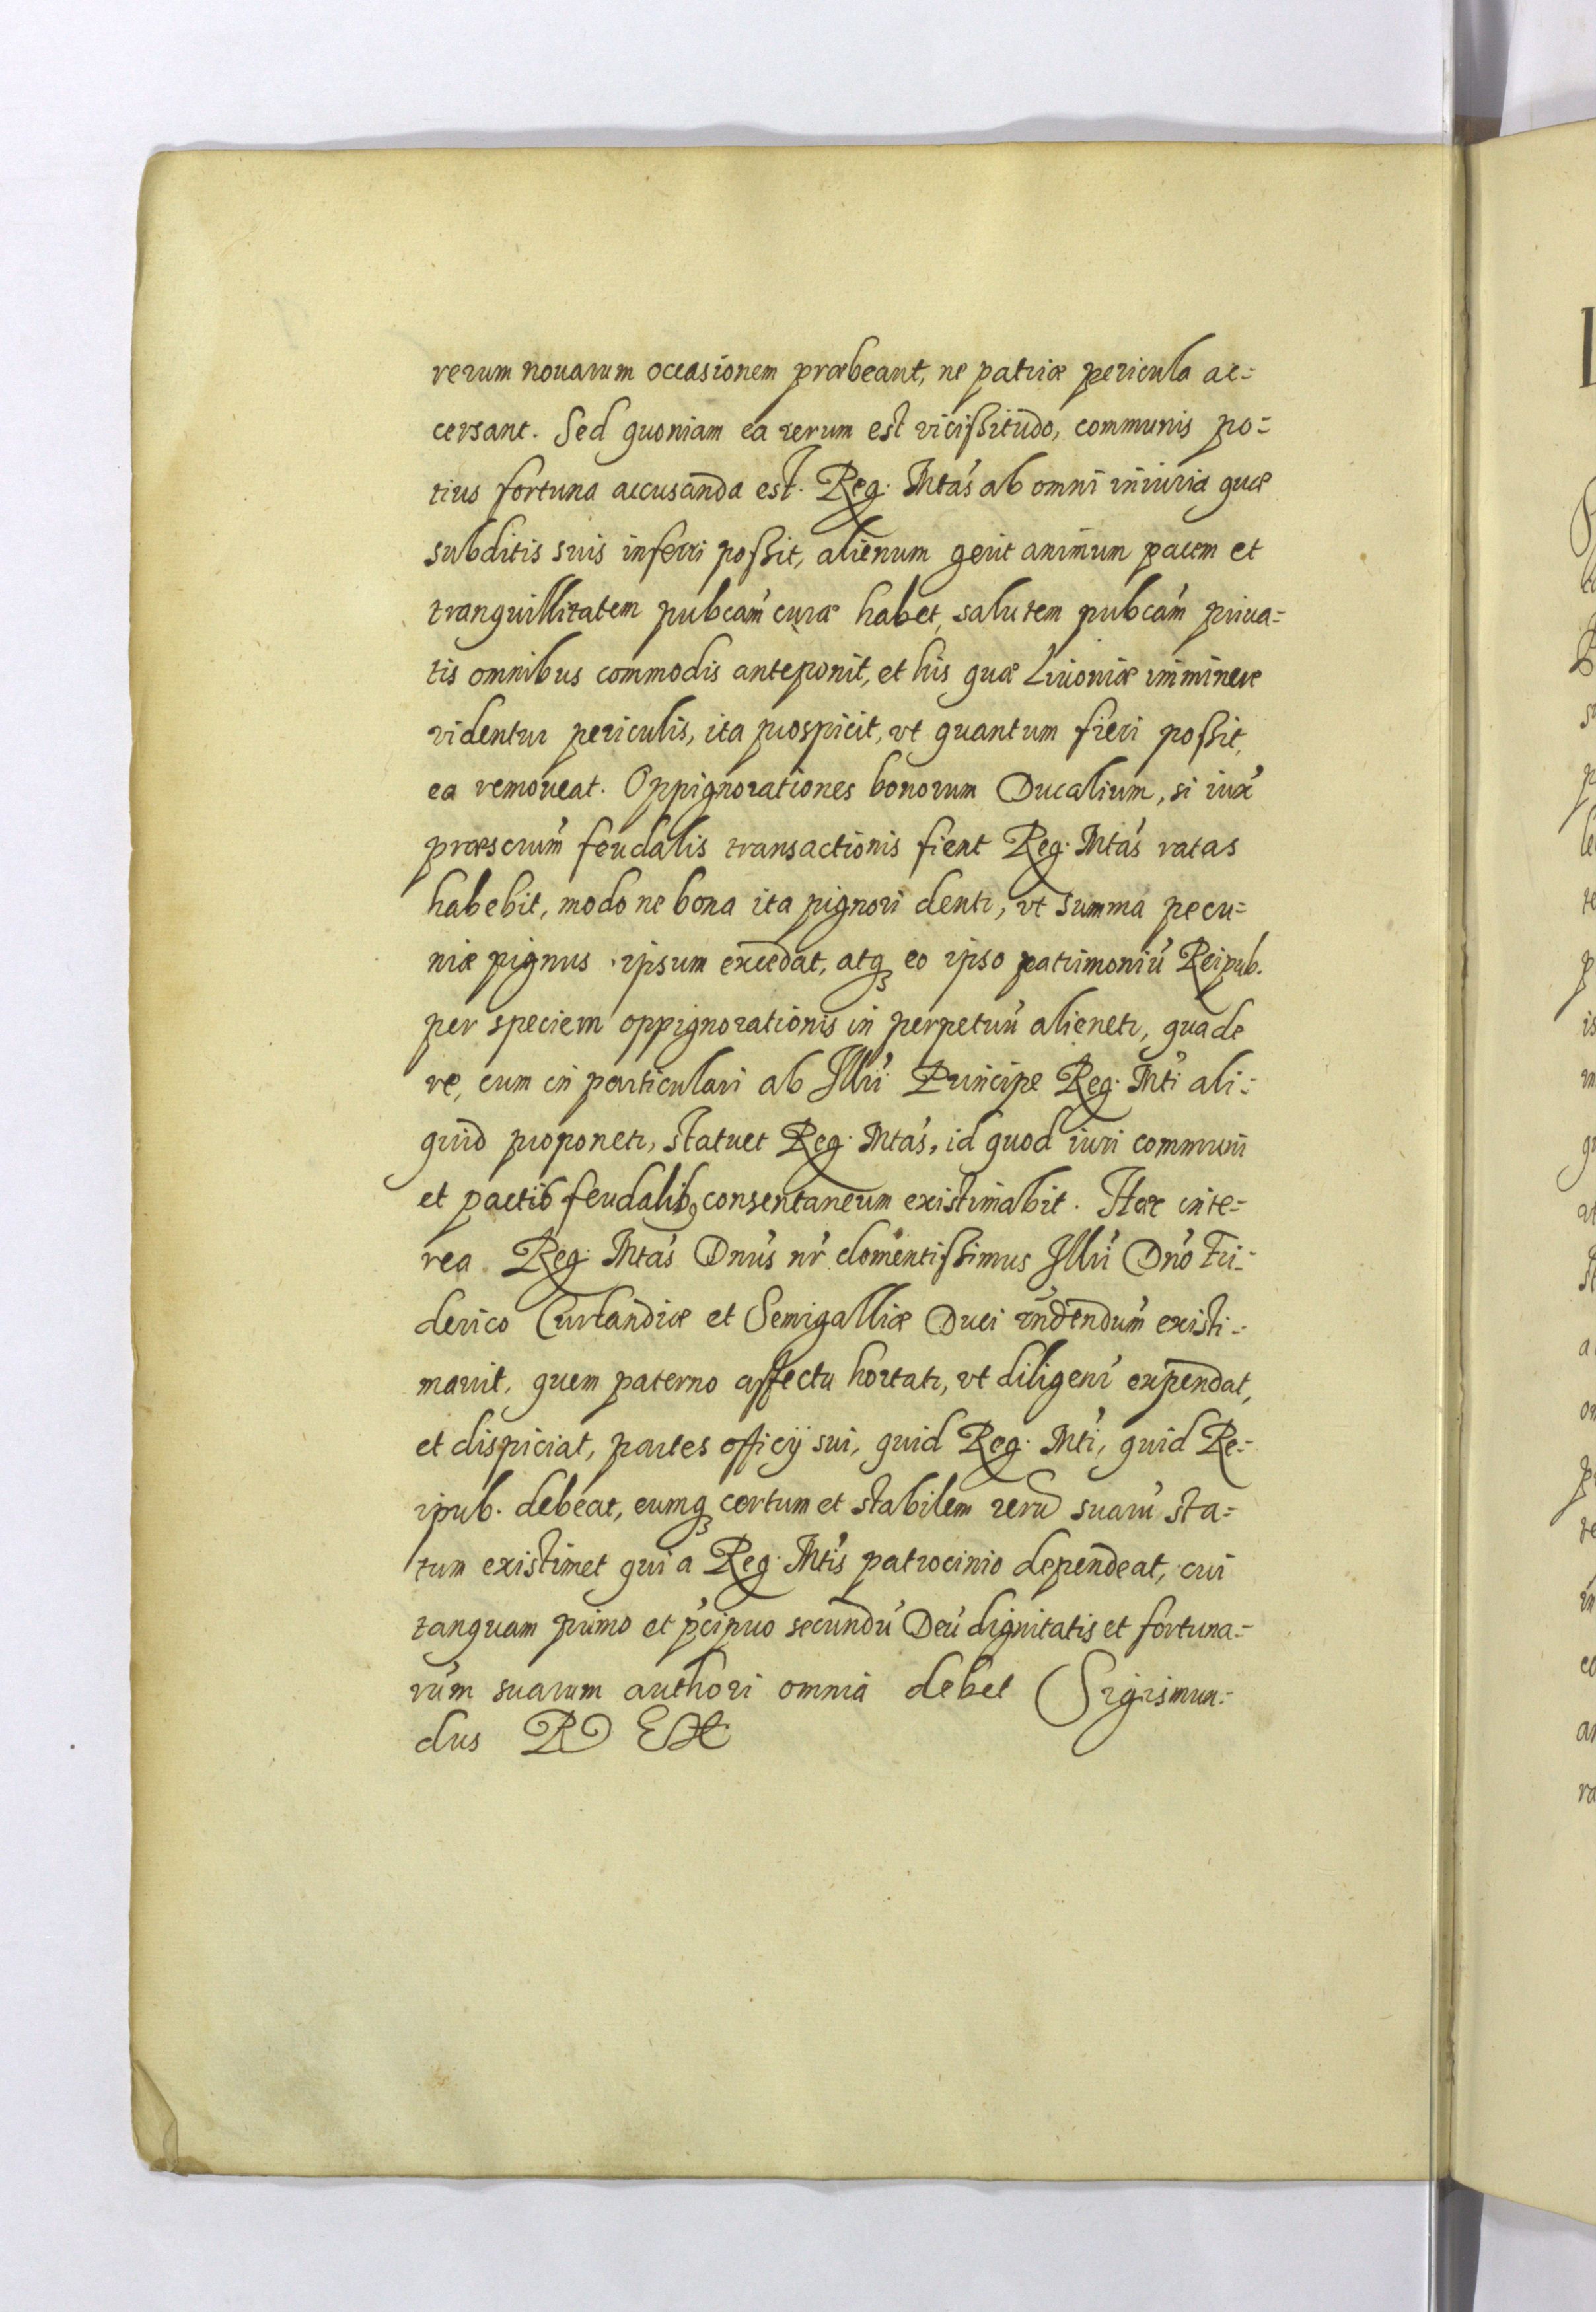 rerum nouarum occasionem præbeant, ne patriæ pericula ac=
cersant. Sed quoniam ea rerum est vicißitudo, communis po=
tius fortuna accusanda est. Reg. Mtas ab omni iniuria quæ
subditis suis inferri poßit, alienum gerit animum pacem et
tranquillitatem pubcam curæ habet, salutem pubcam priua=
tis omnibus commodis anteponit, et his quæ Liuoniæ imminere
videntur periculis, ita prospicit, vt quantum fieri poßit,
ea remoueat. Oppignorationes bonorum Ducalium, si iux
præscrum feudalis transactionis fient Reg. Mtas ratas
habebit, modo ne bona ita pignori dentr, vt summa pecu=
niæ pignus ipsum excedat, atq eo ipso patrimoniu Reipub.
per speciem oppignorationis in perpetuu alienetr, qua de
re, cum in particulari ab Illri Principe Reg. Mti ali=
quid proponetr, statuet Reg. Mtas, id quod iuri communi
et pactis feudalib9 consentaneum existimabit. Hæc inte=
rea Reg. Mtas Dnus nr clementißimus Illri Dno Fri=
derico Curlandiæ et Semigalliæ Duci rndendum existi=
mauit, quem paterno affectu hortatr, vt diligenr expendat,
et dispiciat, partes officij sui, quid Reg. Mti, quid Re=
ipub. debeat, eumq certum et stabilem reru suaru sta=
tum existimet qui a Reg. Mtis patrocinio dependeat, cui
tanquam primo et pcipuo secundu Deu dignitatis et fortuna=
rum suarum authori omnia debet Sigismun=
dus R